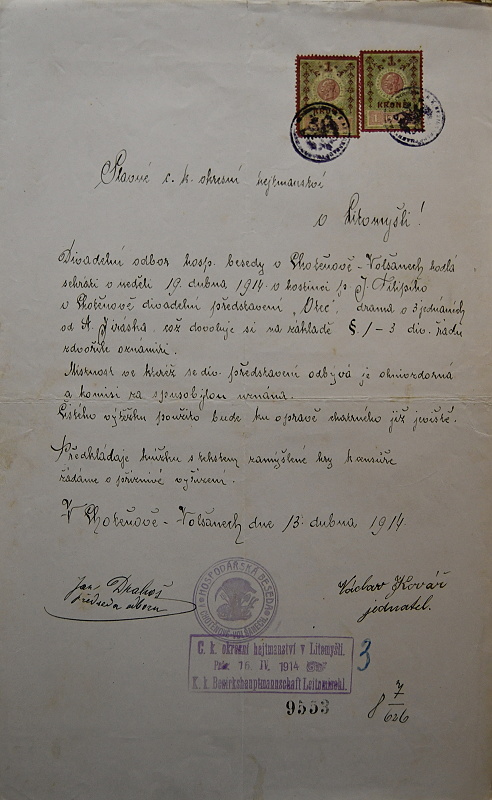 1
1
KRONE
Slavné c. k. okresní hejtmanství
v Litomyšli!
Divadelní odbor hosp. besedy v Chotěnově-Volšanech hodlá
sehráti v neděli 19. dubna 1914 v hostinci p. J. Filipiho
v Chotěnově divadelní představení „Otec", drama o 3 jednáních
od A. Jiráska, což dovoluje si na základě § 1-3 div. řádu
zdvořile oznámiti.
Místnost ve kteréž se div. představení odbývá je ohnivzdorná
a komisí za spůsobylou uznána.
Čistého výtěžku použito bude ku opravě chatrného již jeviště.
Předkládaje knížku s tekstem zamýšlené hry k censuře
žádáme o příznivé vyřízení.
V Chotěnově-Volšanech dne 13. dubna 1914.
Jan Drahoš
předseda odboru
Václav Kovář
jednatel.
HOSPODÁŘSKÁ BESEDA
C. k. okresní hejtmanství v Litomyšli.
16. IV. 1914
K. k. Bezirkshauptmannschaft Leitomischl.
3
9553
8 7/626